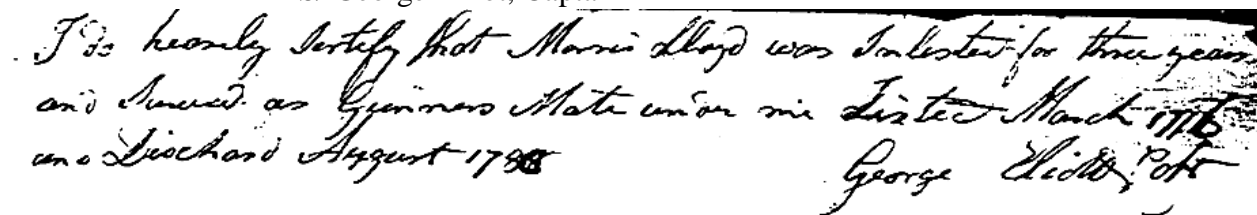 I do hearily Sertify that Morris Lloyd was Inlisted for three years
and Served as Gunners Mate under me Listed March 1776
and Dischard August 17
George Eliott